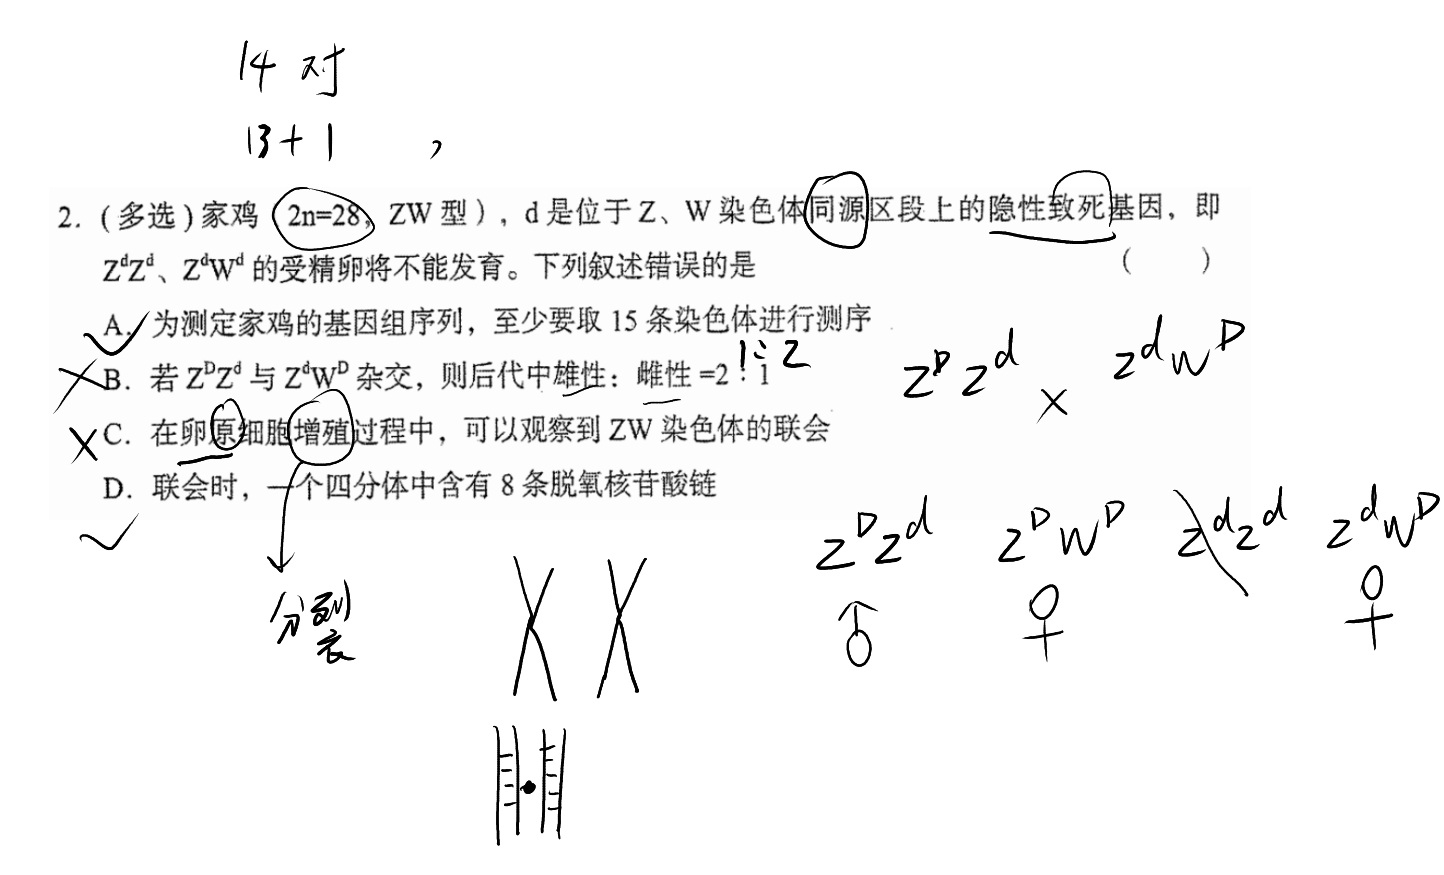 14 对
13+1 ,
2. (多选)家鸡(2n=28,ZW 型),d 是位于 Z、W 染色体同源区段上的隐性致死基因,即
ZᵈZᵈ、ZᵈWᵈ 的受精卵将不能发育。下列叙述错误的是 ( )
A. 为测定家鸡的基因组序列,至少要取 15 条染色体进行测序
1:2
B. 若 ZᴰZᵈ 与 ZᵈWᴰ 杂交,则后代中雄性:雌性=2:1
ZᴰZᵈ × ZᵈWᴰ
C. 在卵原细胞增殖过程中,可以观察到 ZW 染色体的联会
D. 联会时,一个四分体中含有 8 条脱氧核苷酸链
ZᴰZᵈ ZᴰWᴰ ZᵈZᵈ ZᵈWᴰ
♂ ♀ ♀
分裂